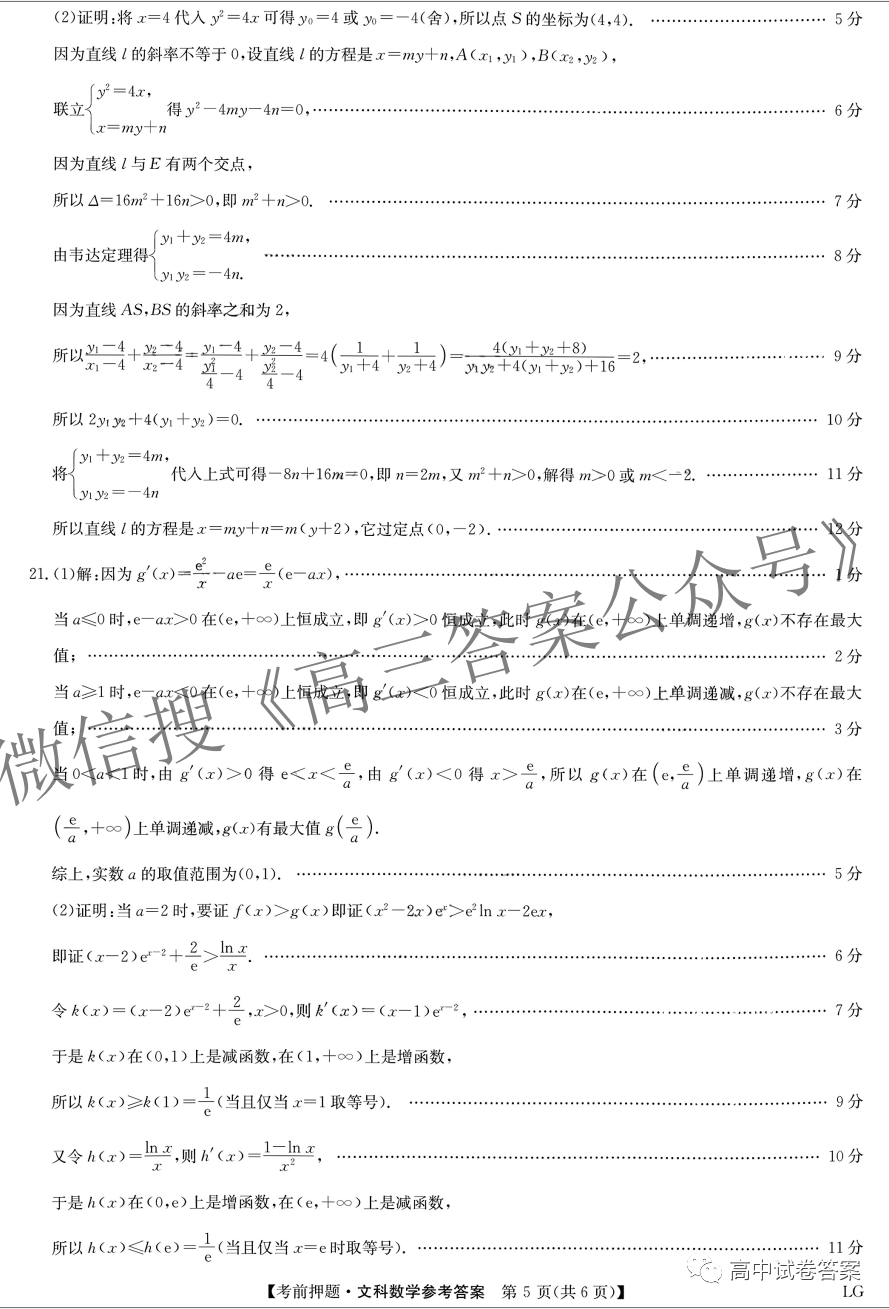 (2)证明:将 x=4 代入 y²=4x 可得 y₀=4 或 y₀=-4(舍),所以点 S 的坐标为(4,4). …… 5 分
因为直线 l 的斜率不等于 0,设直线 l 的方程是 x=my+n,A(x₁,y₁),B(x₂,y₂),
联立{y²=4x, x=my+n 得 y²-4my-4n=0, …… 6 分
因为直线 l 与 E 有两个交点,
所以 Δ=16m²+16n>0,即 m²+n>0. …… 7 分
由韦达定理得{y₁+y₂=4m, y₁y₂=-4n. …… 8 分
因为直线 AS,BS 的斜率之和为 2,
所以 (y₁-4)/(x₁-4)+(y₂-4)/(x₂-4)=(y₁-4)/(y₁²/4-4)+(y₂-4)/(y₂²/4-4)=4(1/(y₁+4)+1/(y₂+4))=4(y₁+y₂+8)/(y₁y₂+4(y₁+y₂)+16)=2, …… 9 分
所以 2y₁y₂+4(y₁+y₂)=0. …… 10 分
将{y₁+y₂=4m, y₁y₂=-4n 代入上式可得-8n+16m=0,即 n=2m,又 m²+n>0,解得 m>0 或 m<-2. …… 11 分
所以直线 l 的方程是 x=my+n=m(y+2),它过定点(0,-2). …… 12 分
21.(1)解:因为 g′(x)=e²/x-ae=e/x(e-ax), …… 1 分
当 a≤0 时,e-ax>0 在(e,+∞)上恒成立,即 g′(x)>0 恒成立,此时 g(x)在(e,+∞)上单调递增,g(x)不存在最大
值; …… 2 分
当 a≥1 时,e-ax<0 在(e,+∞)上恒成立,即 g′(x)<0 恒成立,此时 g(x)在(e,+∞)上单调递减,g(x)不存在最大
值; …… 3 分
当 0<a<1 时,由 g′(x)>0 得 e<x<e/a,由 g′(x)<0 得 x>e/a,所以 g(x)在(e,e/a)上单调递增,g(x)在
(e/a,+∞)上单调递减,g(x)有最大值 g(e/a).
综上,实数 a 的取值范围为(0,1). …… 5 分
(2)证明:当 a=2 时,要证 f(x)>g(x)即证(x²-2x)eˣ>e²ln x-2ex,
即证(x-2)eˣ⁻²+2/e>ln x/x. …… 6 分
令 k(x)=(x-2)eˣ⁻²+2/e,x>0,则 k′(x)=(x-1)eˣ⁻², …… 7 分
于是 k(x)在(0,1)上是减函数,在(1,+∞)上是增函数,
所以 k(x)≥k(1)=1/e(当且仅当 x=1 取等号). …… 9 分
又令 h(x)=ln x/x,则 h′(x)=(1-ln x)/x², …… 10 分
于是 h(x)在(0,e)上是增函数,在(e,+∞)上是减函数,
所以 h(x)≤h(e)=1/e(当且仅当 x=e 时取等号). …… 11 分
【考前押题·文科数学参考答案 第 5 页(共 6 页)】 LG
微信搜《高三答案公众号》
高中试卷答案